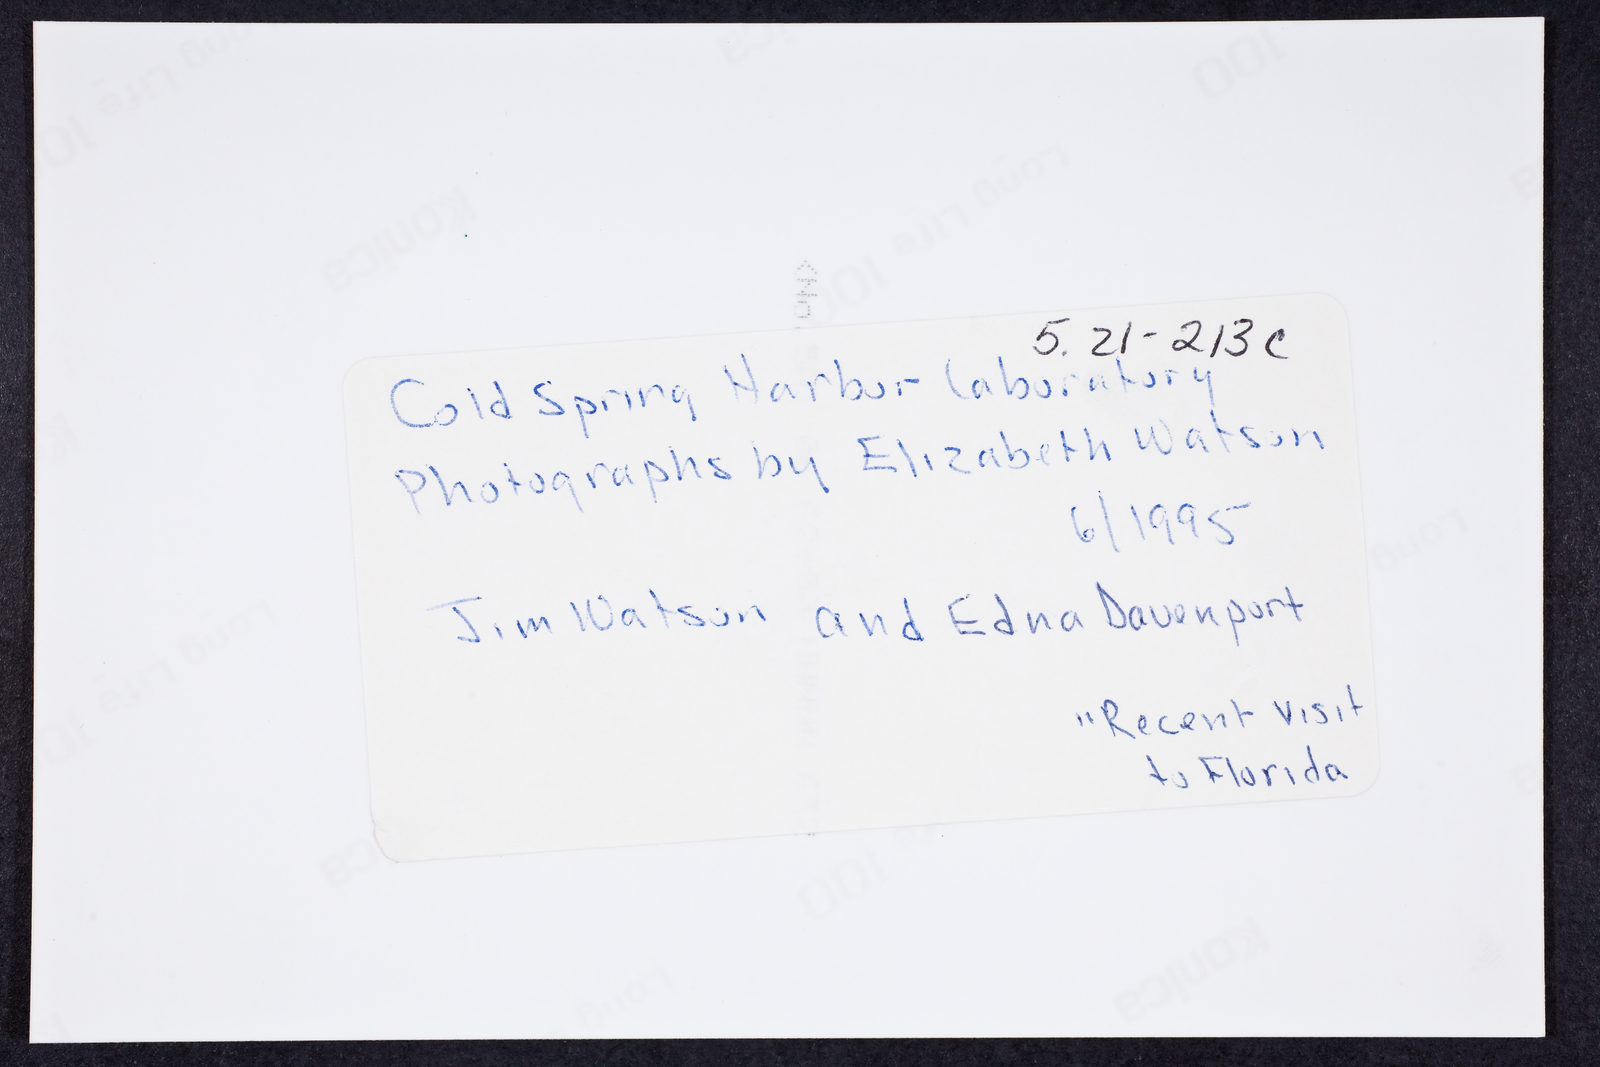 5. 21-213c
Cold Spring Harbor Laboratory
Photographs by Elizabeth Watson
6/1995
Jim Watson and Edna Davenport
"Recent visit
to Florida